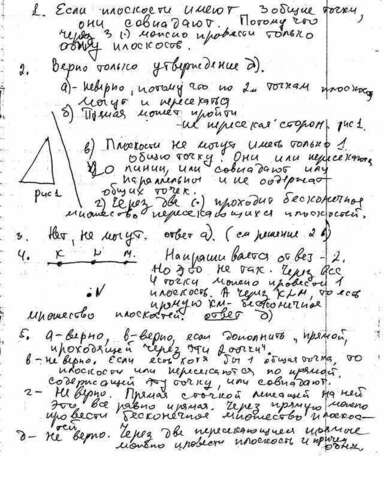 1. Если плоскости имеют 3 общие точки,
они совпадают. Потому что
через 3 (·) можно провести только
одну плоскость.
2. Верно только утверждение д).
а) - неверно, потому что по 2м точкам плоскости
могут и пересекаться
б) Прямая может пройти
не пересекая сторон. рис 1.
рис 1
в) Плоскости не могут иметь только 1
общую точку. Они или пересекаются
по линии, или совпадают или
параллельны и не содержат
общих точек.
г) Через две (·) проходит бесконечное
множество пересекающихся плоскостей.
3. Нет, не могут. ответ а). (см решение 2 в)
4. K L M. Напрашивается ответ - 2.
Но это не так. Через все
4 точки можно провести 1
N плоскость. А через KLM, то есть
прямую KM - бесконечное
множество плоскостей. ответ д)
5. а - верно, б - верно, если дополнить "прямой,
проходящей через эти 2 точки".
в - не верно, если есть хотя бы 1 общая точка, то
плоскости или пересекаются по прямой.
содержащей эту точку, или совпадают.
г - Не верно. Прямая с точкой лежащей на ней
это все равно прямая. Через прямую можно
провести бесконечное множество плоскос-
тей.
д - Не верно. Через две пересекающиеся прямые
можно провести плоскость и причем
одну.